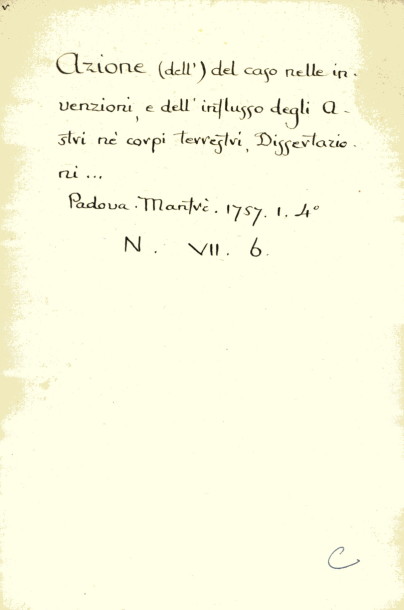 Azione (dell') del caso nelle in-
venzioni, e dell' influsso degli A-
stri nè corpi terrestri, Dissertazio-
ni ...
Padova. Manfrè. 1757. 1. 4°
N. VII. 6.
C